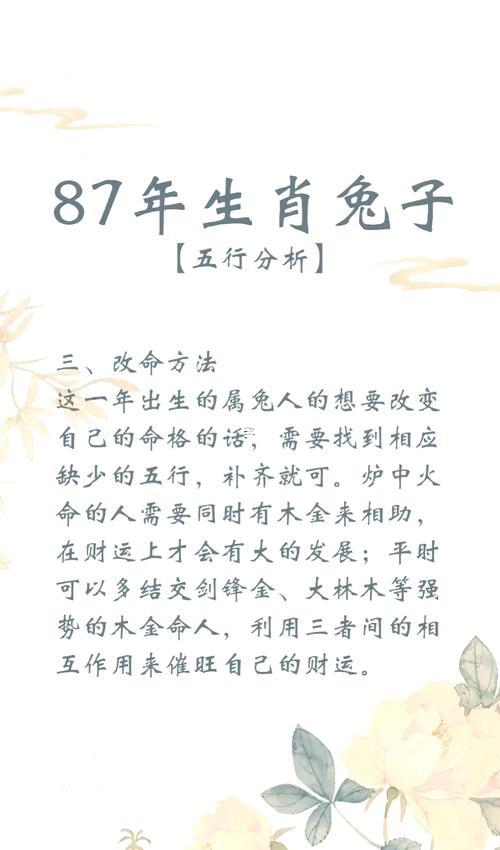 87年生肖兔子
【五行分析】
三、改命方法
这一年出生的属兔人的想要改变
自己的命格的话，需要找到相应
缺少的五行，补齐就可。炉中火
命的人需要同时有木金来相助，
在财运上才会有大的发展；平时
可以多结交剑锋金、大林木等强
势的木金命人，利用三者间的相
互作用来催旺自己的财运。